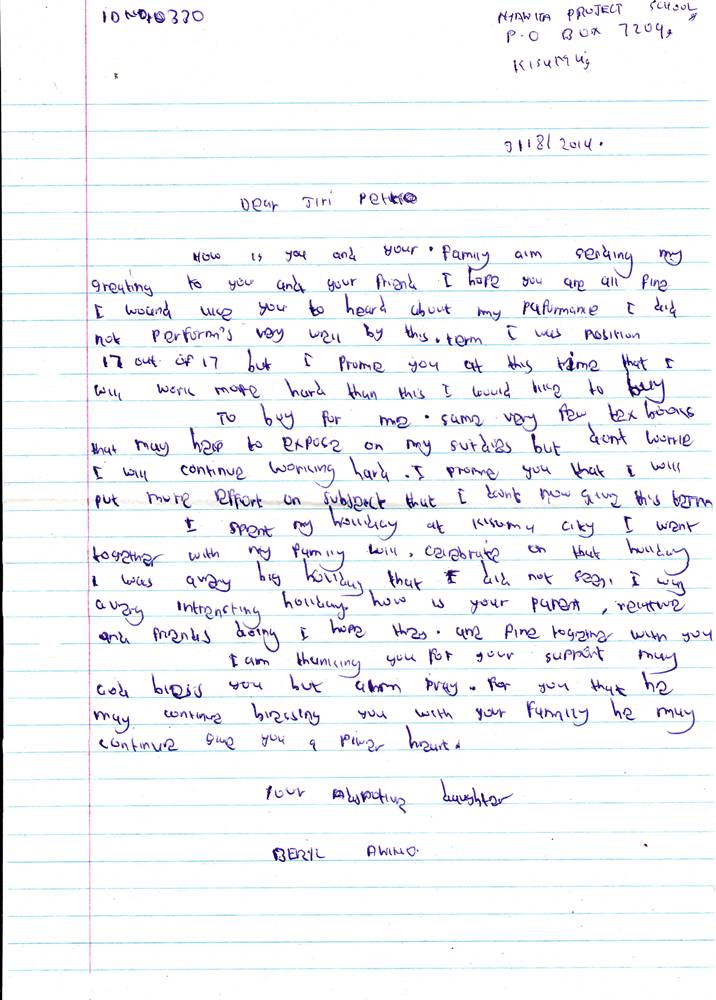 NYAWITA PROJECT SCHOOL
P.O BOX 7204,
Kisumu,
31/8/2014.
Dear Jiri
How is you and your . Family aim sending my
greating to you and your friend I hope you are all fine
I wound like you to heard about my paformance I did
not perform's very well by this . term I was position
17 out of 17 but I prome you at this time that I
will work more hard than this I would like to buy
To buy for me . same very few tex books
that may help to expose on my sutdies but dont worrie
I will continue working hard . I prome you that I will
put more effort on subject that I dont now give this term
I spent my holliday at kisumu city I went
together with my family will . celebrate on that holiday
I was avery big holiday that I did not see, I way
avery intresting holliday. how is your parent , relative
and friends doing I hope they . are fine together with you
I am thanking you for your support may
God bless you but amm pray . for you that he
may continue blessing you with your family he may
continue give you a piwer heart .
Your daughter
BERYL AWINO.